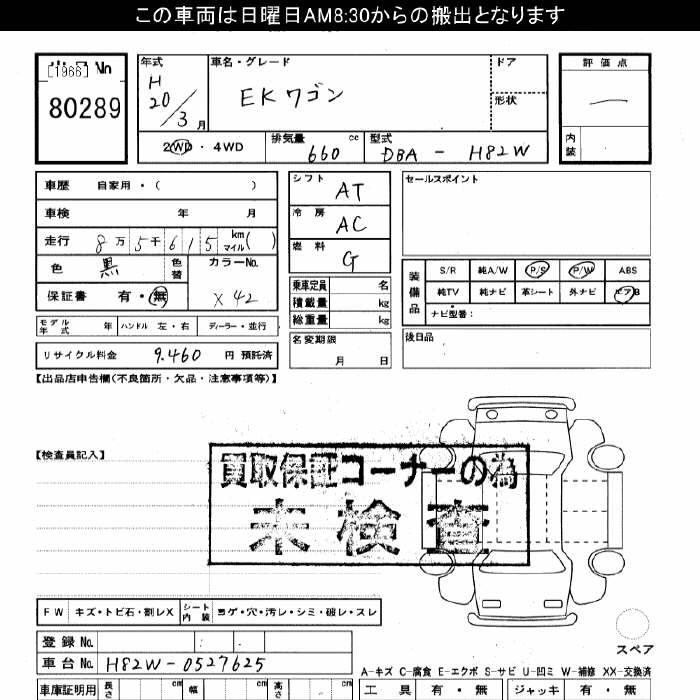 この車両は日曜日AM8:30からの搬出となります
[1966]
80289
年式 H 20/3 月
車名・グレード EKワゴン
ドア
形状
評価点
一
内装
2WD・4WD
排気量 660 cc
型式 DBA - H82W
車歴 自家用・( )
車検 年 月
走行 8万5千615 km マイル( )
色 黒 色替 カラーNo.
保証書 有・無 X42
モデル年式 年 ハンドル 左・右 ディーラー・並行
リサイクル料金 9,460 円 預託済
シフト AT
冷房 AC
燃料 G
乗車定員 名
積載量 kg
総重量 kg
名変期限 月 日
セールスポイント
装備品 S/R 純A/W P/S P/W ABS
純TV 純ナビ 革シート 外ナビ エアB
ナビ型番:
後日品
【出品店申告欄(不良箇所・欠品・注意事項等)】
【検査員記入】
買取保証コーナーの為
未検査
FW キズ・トビ石・割レX シート内装 コゲ・穴・汚レ・シミ・破レ・スレ
登録No.
車台No. H82W-0527625
スペア
A-キズ C-腐食 E-エクボ S-サビ U-凹ミ W-補修 XX-交換済
車庫証明用 長さ cm 幅 cm 高さ cm
工具 有・無 ジャッキ 有・無